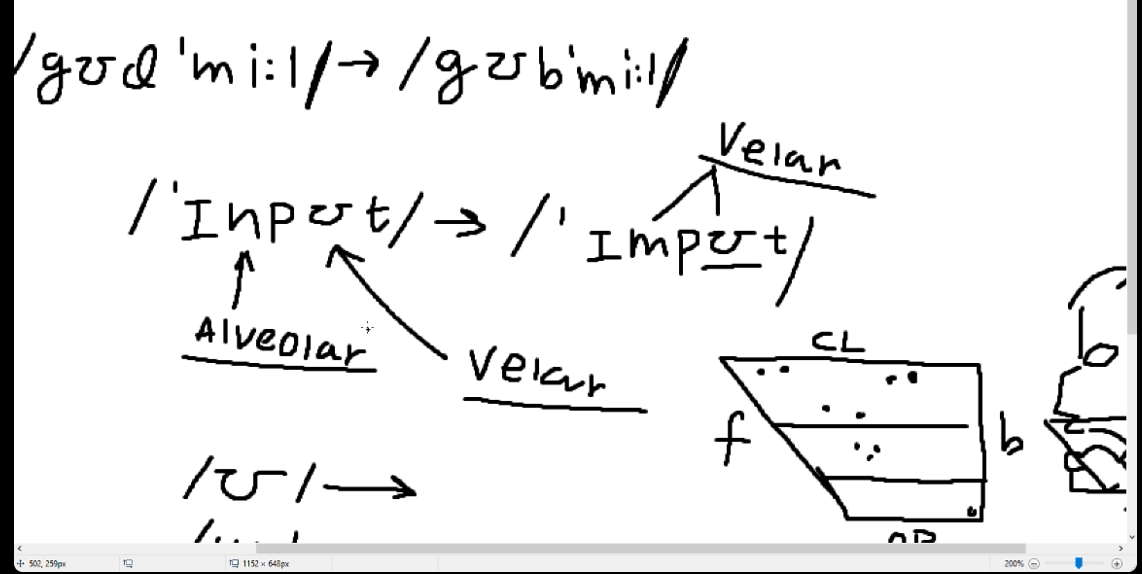 /gʊd 'mi:l/ → /gʊb'mi:l/
Velar
/'Inpʊt/ → /'Impʊt/
Alveolar
Velar
CL
f
b
/ʊ/ →
502, 259px
1152 × 648px
200%